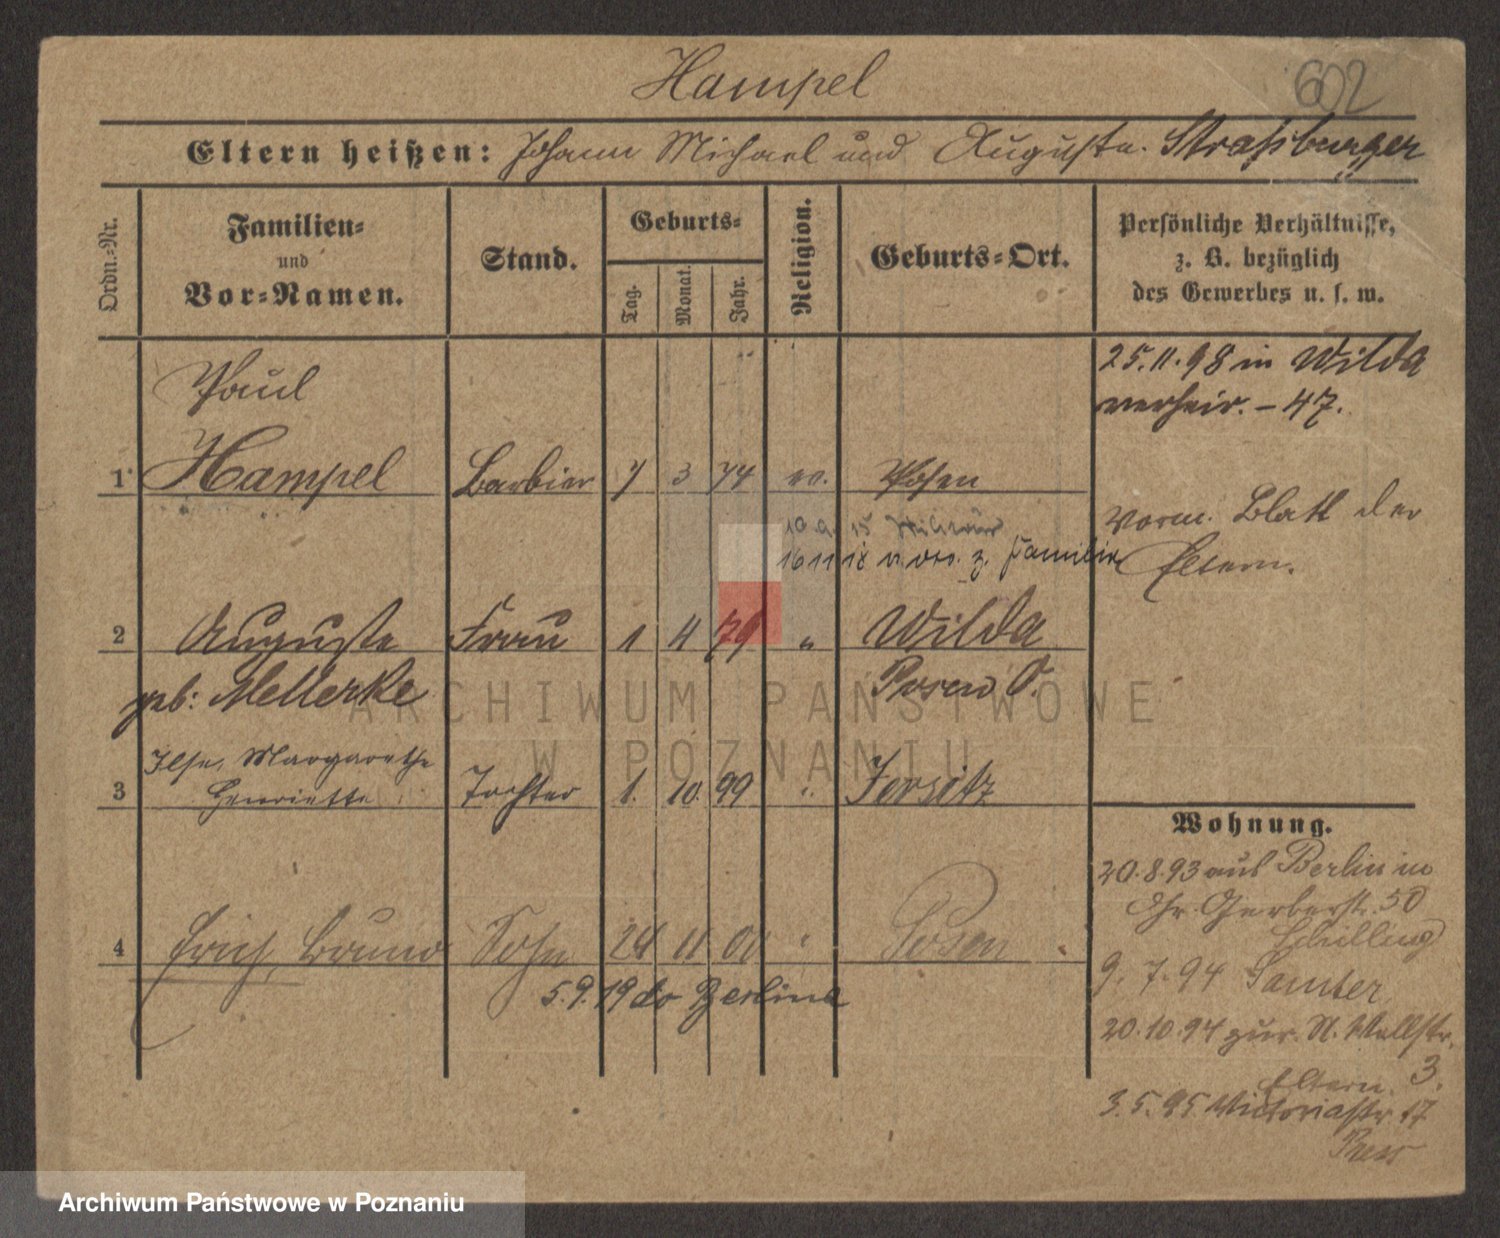 Hampel
602
Eltern heißen: Johann Michael und Auguste Straßburger
Ordn.-Nr.
Familien-
und
Vor-Namen.
Stand.
Geburts-
Tag.
Monat.
Jahr.
Religion.
Geburts-Ort.
Persönliche Verhältnisse,
z. B. bezüglich
des Gewerbes u. s. w.
25.11.98 in Wilda
verheir. - 47.
Paul
1 Hampel Barbier 7 3 74 ev. Posen
vorm. Blatt der
Eltern.
10 9 15 Militär
16 11 18 z. Familie
2 Auguste Frau 1 4 79 " Wilda
geb: Mellerke Posen O.
Ilse, Margarethe
3 Henriette Tochter 1. 10. 99 " Jersitz
4 Erich, Bruno Sohn 28 11 00 " Posen
5.9.19 do Berlina
Wohnung.
20.8.93 aus Berlin in
Gr. Gerberstr. 50
Schilling
9. 7. 94 Samter
20.10.94 zur. N. Wallstr.
3.
Eltern.
3.5.95 Victoriastr. 17
ARCHIWUM PAŃSTWOWE
W POZNANIU
Archiwum Państwowe w Poznaniu